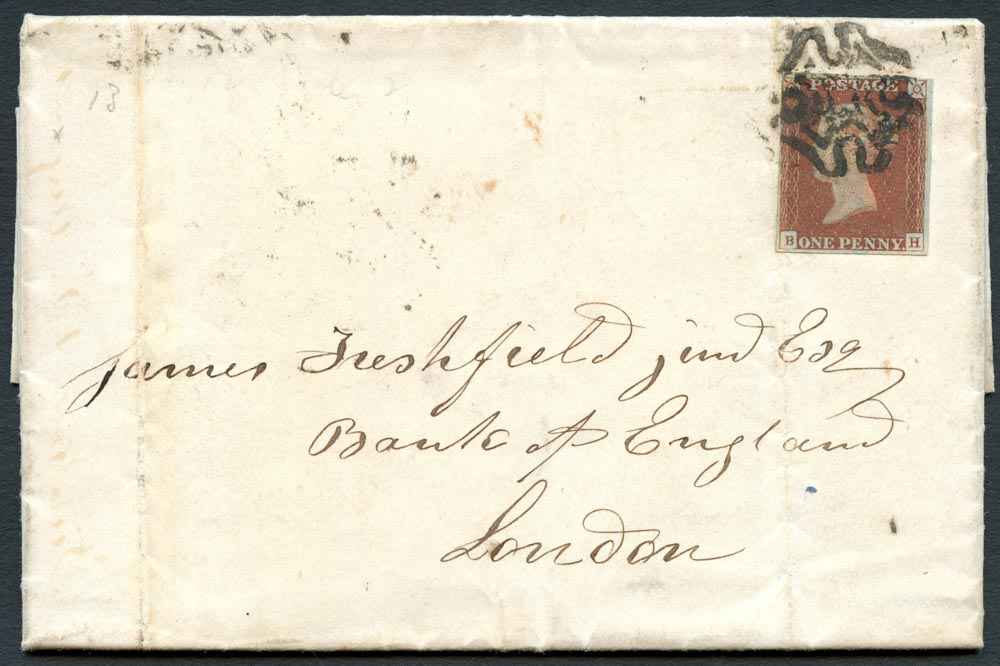 18
POSTAGE
B ONE PENNY. H
James Freshfield jun Esq
Bank of England
London